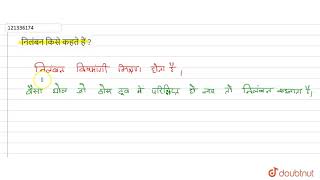 121336174
निलंबन किसे कहते हैं ?
निलंबन विषमांगी मिश्रण होता है ।
वैसा घोल जो ठोस द्रव में परिक्षिप्त हो जाए तो निलंबन कहलाता है।
doubtnut